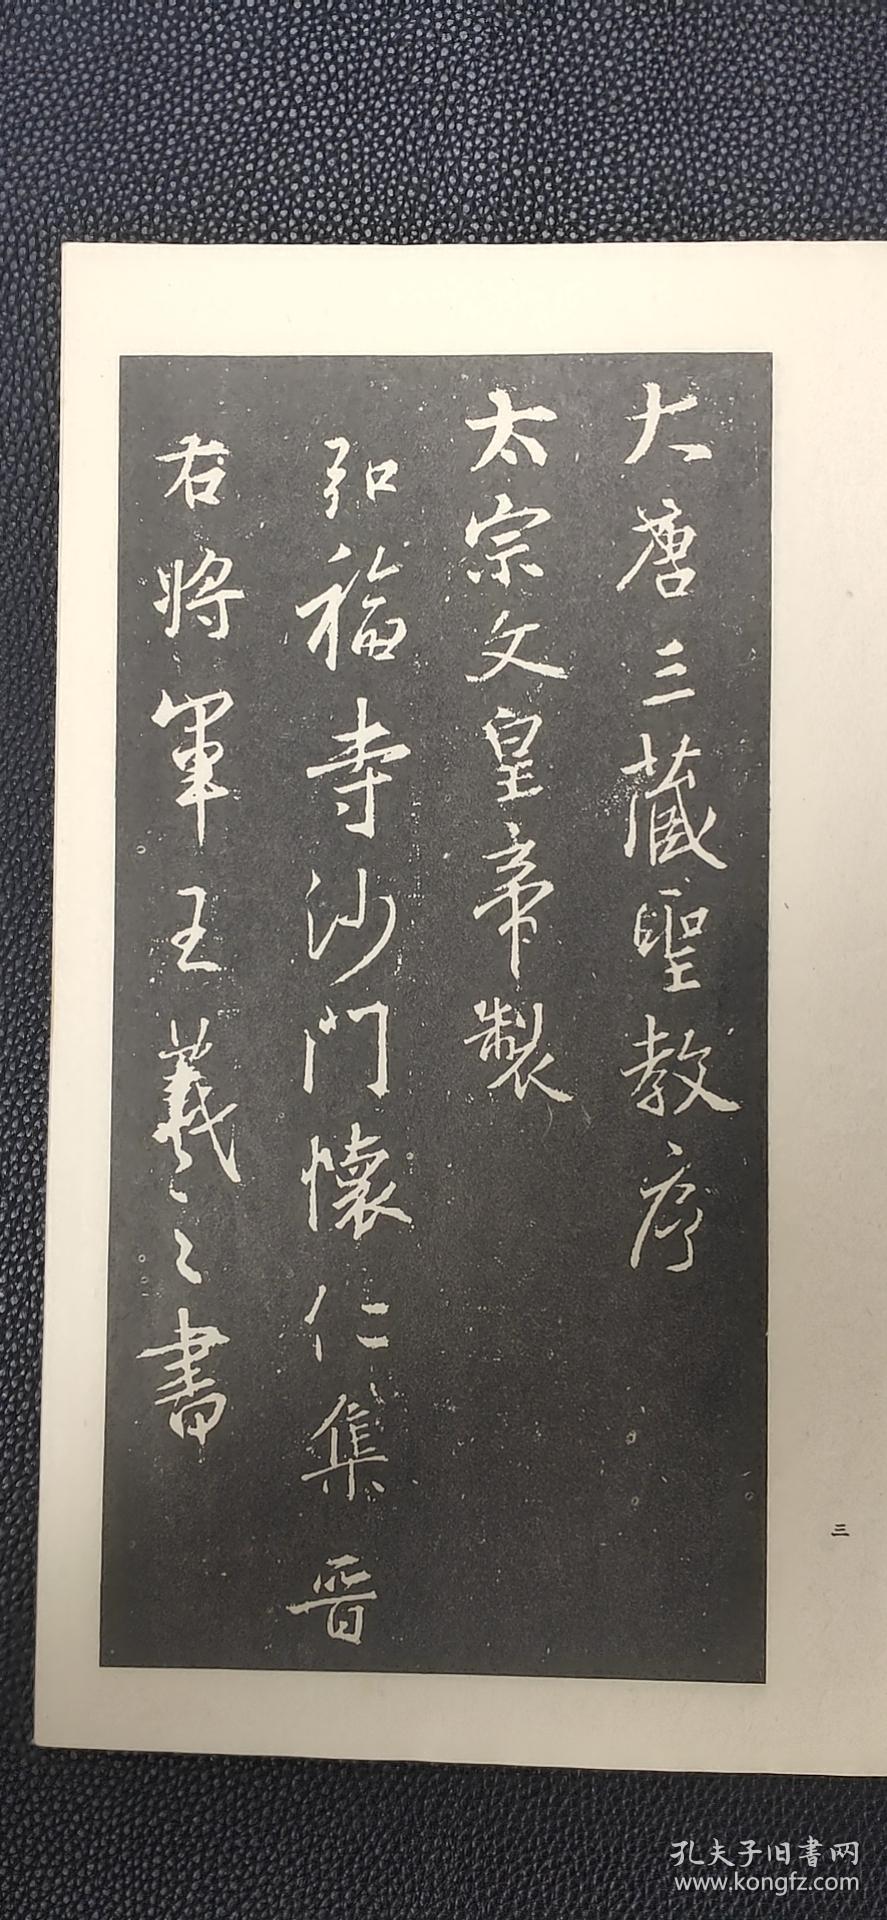 大唐三藏聖教序
太宗文皇帝製
弘福寺沙門懷仁集晉
右將軍王羲之書
三
孔夫子旧書网
www.kongfz.com